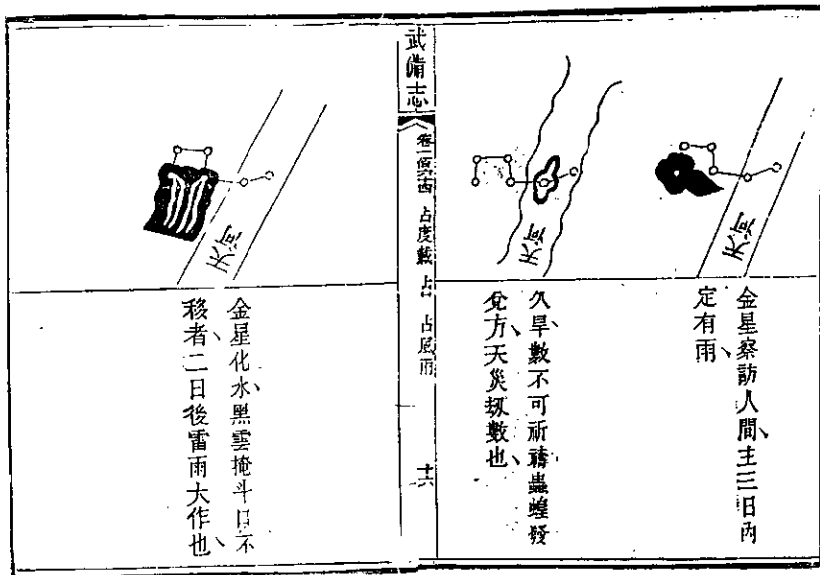 天河
金星察訪人間主三日內
定有雨
天河
久旱數不可祈禱蟲蝗發
兌方天災劫數也
武備志
占度載 占 占風雨
十六
天河
金星化水黑雲掩斗口不
移者二日後雷雨大作也